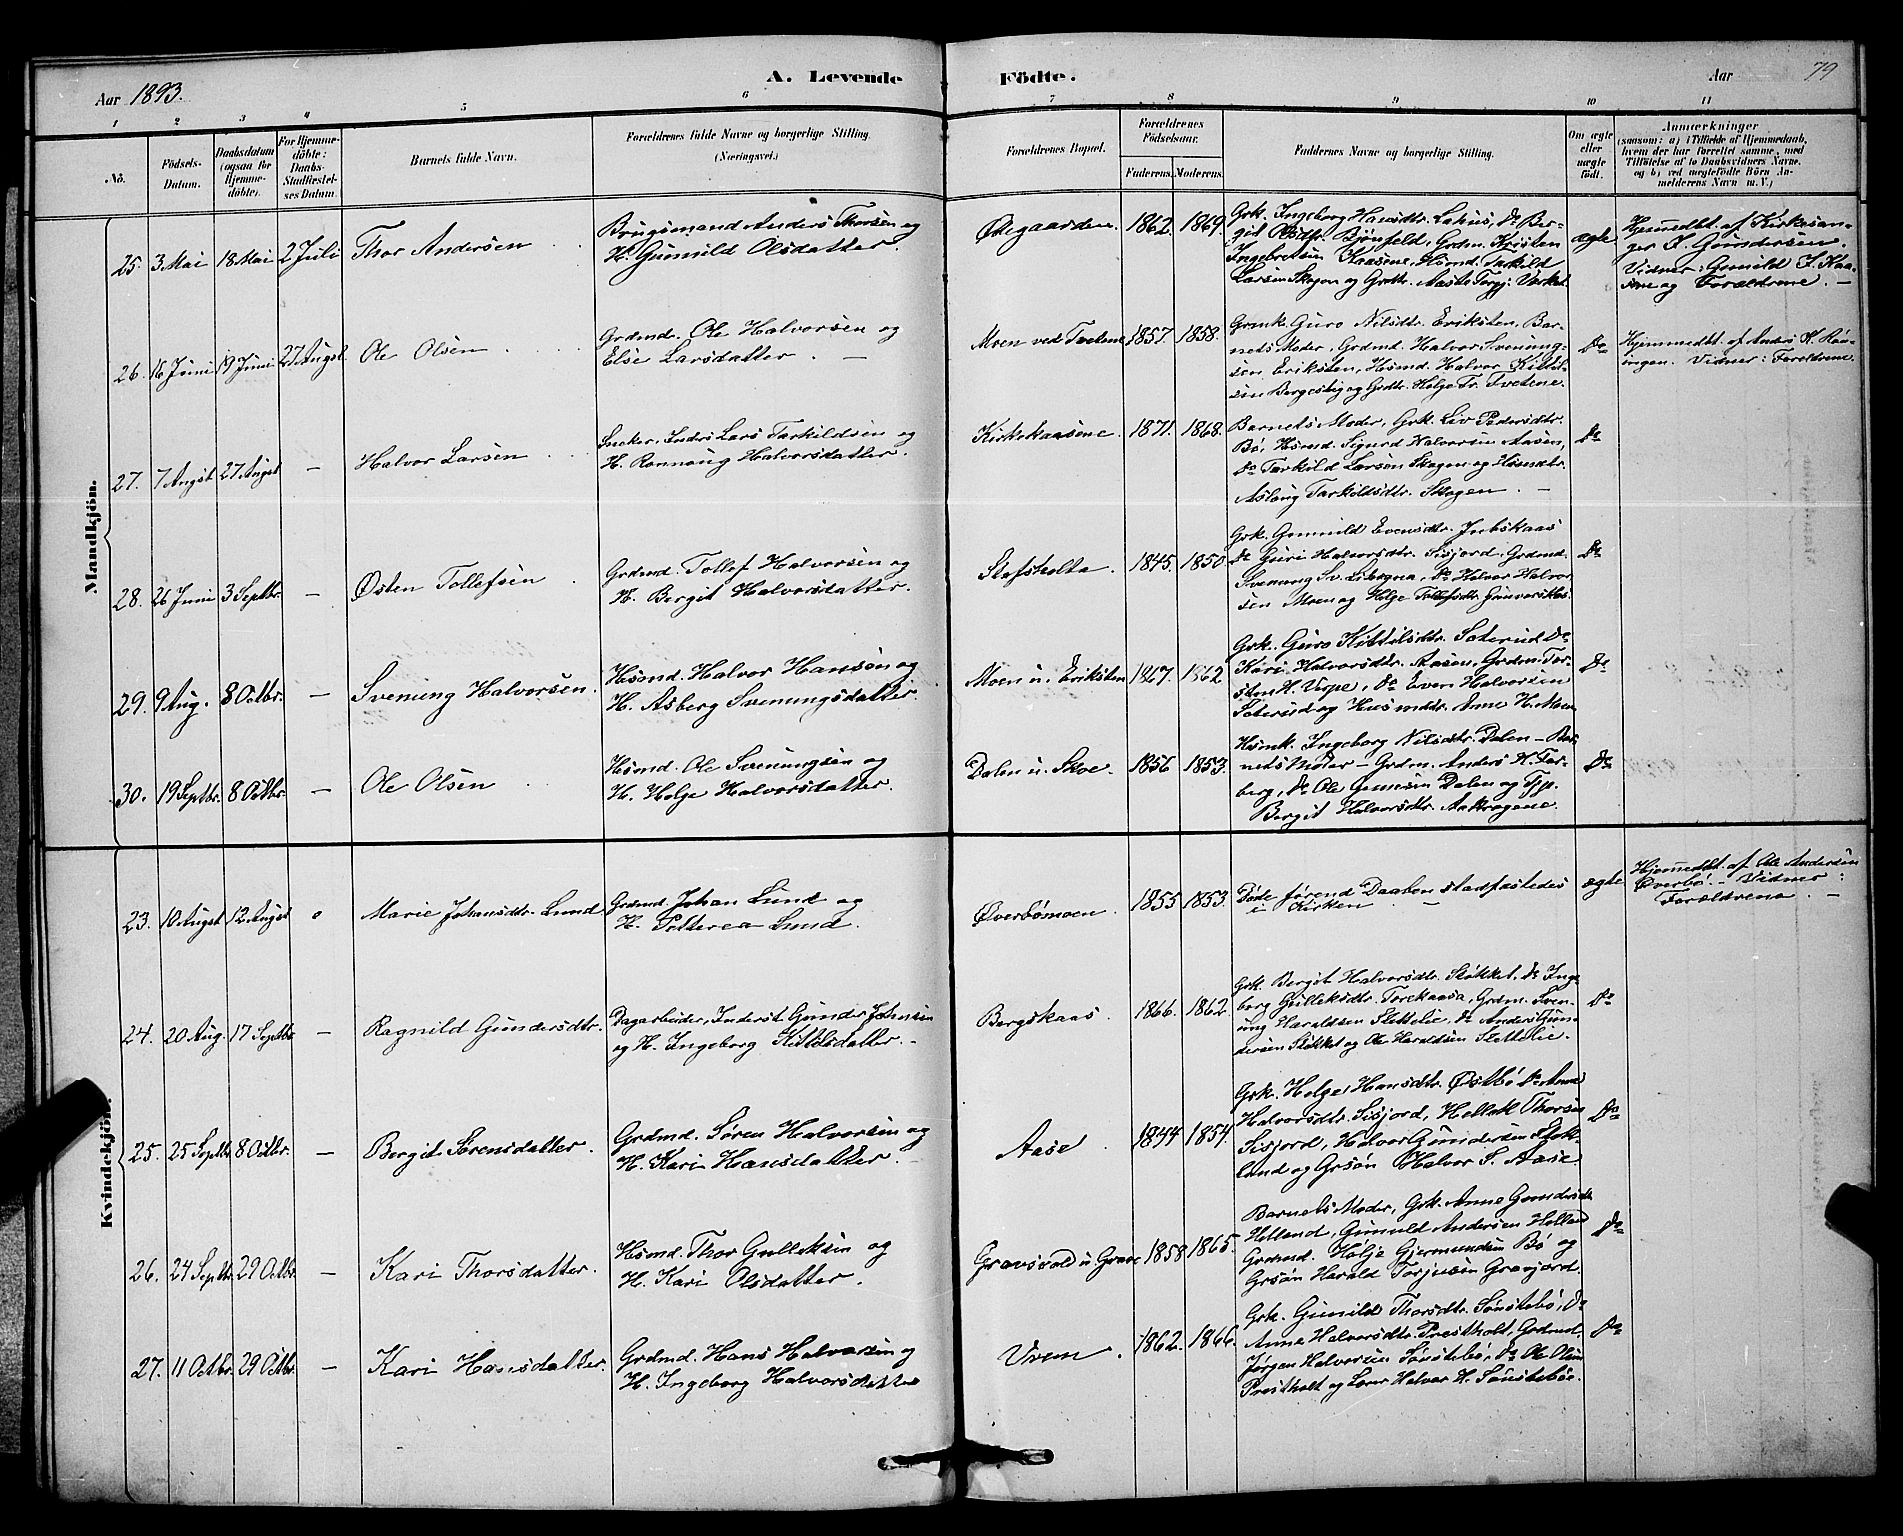 Aar 1893.
A. Levende
Födte.
Aar
79
1 2 3 4 5 6 7 8 9 10 11
No.
Födsels-
Datum.
Daabsdatum
(ogsaa for
Hjemme-
döbte).
For Hjemme-
döbte:
Daabs-
Stadfæstel-
ses Datum.
Barnets fulde Navn.
Forældrenes fulde Navne og borgerlige Stilling
(Næringsvei.)
Forældrenes Bopæl.
Forældrenes
Födselsaar.
Faderens. Moderens.
Faddernes Navne og borgerlige Stilling.
Om ægte
eller
uægte
födt.
Anmærkninger
(saasom: a) i Tilfælde af Hjemmedaab,
hvem der har forrettet samme, med
Tilföielse af to Daabsvidners Navne,
og b) ved uægtefödte Börn An-
melderens Navn m. V.)
Mandkjön.
25. 3 Mai 18 Mai 2 Juli Thor Andersen
Brugsmand Anders Thorsen og
H. Gunnild Olsdatter
Øegaardene 1862. 1869.
Grk. Ingeborg Hansdtr. Lahus, Do Ber-
git Olsdtr. Bjönfeld, Grdm. Kristen
Ingebretsen Kaasene, Hsmd. Tarkild
Larsen Skogen og Grdtr. Aaste Torgj. Verket
ægte
Hjemmedbt. af Kirkesan-
ger S. Gundersen.
Vidner: Gunild I. Kaa-
sene og Forældrene. —
26. 16 Juni 19 Juni 27 Augst. Ole Olsen
Grdmd. Ole Halvorsen og
Else Larsdatter. —
Moen ved Tvetene 1857. 1858.
Grmk. Guro Nilsdtr. Eriksten, Bar-
nets Moder, Grdmd. Halvor Svenung-
sen Eriksten, Hsmd. Halvor Kittel-
sen Bergestig og Grdtr. Helge Tr. Tvetene.
Do
Hjemmedbt. af Anders H. Røn-
ingen. Vidner: Forældrene.
27. 7 Augst 27 Augst — Halvor Larsen
Sneker, Inders Lars Tarkildsen og
H. Ronnoug Halvorsdatter.
Kirkekaasene. 1871. 1868.
Barnets Moder, Grk. Liv Pedersdtr.
Bö, Hsmd. Sigurd Halvorsen Aasen,
Do Tarkild Larsen Skogen og Hsmdtr.
Aslaug Tarkildsdtr. Skogen. —
Do
28. 26 Juni 3 Septbr. — Østen Tollefsen
Grdmd. Tollef Halvorsen og
H. Bergit Halvorsdatter.
Stafsholta. 1845. 1850.
Grk. Gunnild Evensdtr. Jutskaas
Do Guri Halvorsdtr. Sisjord, Grdmd.
Svenung Sv. Libogna, Do Halvor Halvor-
sen Moen og Helge Tollefsdtr.
Do
29. 9 Aug. 8 Octbr. — Svenung Halvorsen.
Hsmd. Halvor Hansen og
H. Asberg Svenungsdatter.
Moen u. Eriksten 1867. 1862
Grk. Guro Kittilsdtr. Soterud Do
Kari Halvorsdtr. Aasen, Grdm. Tor-
sten H. Verpe, Do Even Halvorsen
Soterud og Husmdtr. Anne H. Moen
Do
30. 19 Septbr. 8 Octbr. — Ole Olsen
Hsmd. Ole Svenungsen og
H. Helge Halvorsdatter.
Dalen u. Skoe. 1856 1853.
Hsmk. Ingeborg Nilsdtr. Dalen — Bar-
nets Moder — Grdm. Anders H. Tor-
berg, Do Ole Gunnsen Dalen og Tjp.
Bergit Halvorsdtr. Aakrogene.
Do
Kvindekjön.
23. 10 Augst 12 Augst o Marie Johansdtr. Lund
Grdmd. Johan Lund og
H. Petterea Lund.
Øverbömoen. 1855 1853.
Døde förend Daaben stadfæstedes
i Kirken. —
ægte
Hjemmedbt. af Ole Andersen
Øverbö. — Vidner:
Forældrene. —
24. 20 Aug. 17 Septbr. — Ragnild Gundersdtr.
Dagarbeider, Inderst Gunder Johnsen
og H. Ingeborg Kittilsdatter. —
Bergskaas. 1866. 1862.
Grk. Bergit Halvorsdtr. Stökket, Do Inge-
borg Gulleksdtr. Torekaasa, Grdm. Sven-
ung Haraldsen Slettelie, Do Anders Gun-
dersen Stökket og Ole Haraldsen Slettelie.
Do
25. 25 Septbr. 8 Octbr. — Bergit Sörensdatter.
Grdmd. Sören Halvorsen og
H. Kari Hansdatter. —
Aase. 1844 1854.
Grk. Helge Hansdtr. Østbö Do Anne
Halvorsdtr. Sisjord, Hellek Thorsen
Sisjord, Halvor Gundersen Stok-
land og Grsön Halvor S. Aase.
Do
26. 24 Septbr. 29 Octbr. — Kari Thorsdatter.
Hsmd. Thor Gulleksen og
H. Kari Olsdatter.
Gravsvold u Grave 1858 1865.
Barnets Moder, Grk. Anne Gundersdtr.
Helland, Gunuld Andersen Helland
Grdmd. Holje Gjermundsen Bö og
Grsön Harald Torjusen Gravjord.
Do
27. 11 Octbr. 29 Octbr. — Kari Hansdatter.
Grdmd. Hans Halvorsen og
H. Ingeborg Halvorsdatter
Vrem. 1862. 1866.
Grk. Gunild Thorsdtr. Sönstebö, Do
Anne Halvorsdtr. Prestholt, Grdmd.
Jörgen Halvorsen Sönstebö, Do Ole Olsen
Prestholt og Lærer Halvor H. Sönstebö.
Do